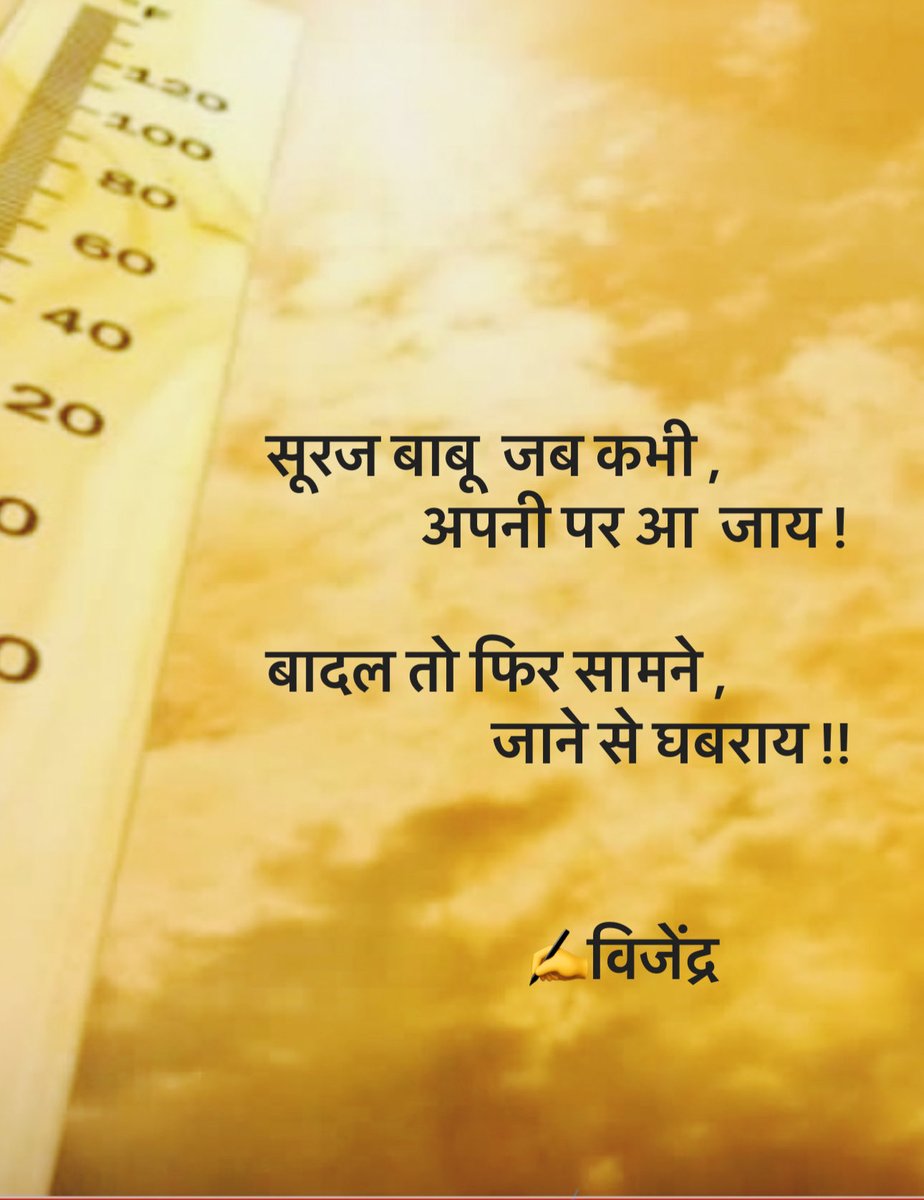 F
120
100
80
60
40
20
0
0
सूरज बाबू जब कभी ,
अपनी पर आ जाय !
बादल तो फिर सामने ,
जाने से घबराय !!
✍विजेंद्र